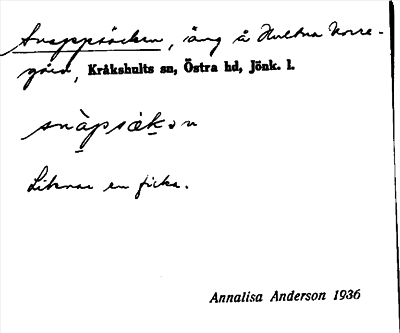 Snappsäcken, äng å Hultna Norre-
gård, Kråkshults sn, Östra hd, Jönk. l.
snàpsäkən
Liknar en ficka.
Annalisa Anderson 1936